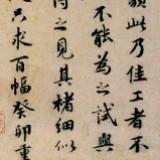 類此乃佳工者不
不能為之試與
得之見其楮細似
只求百幅癸卯重